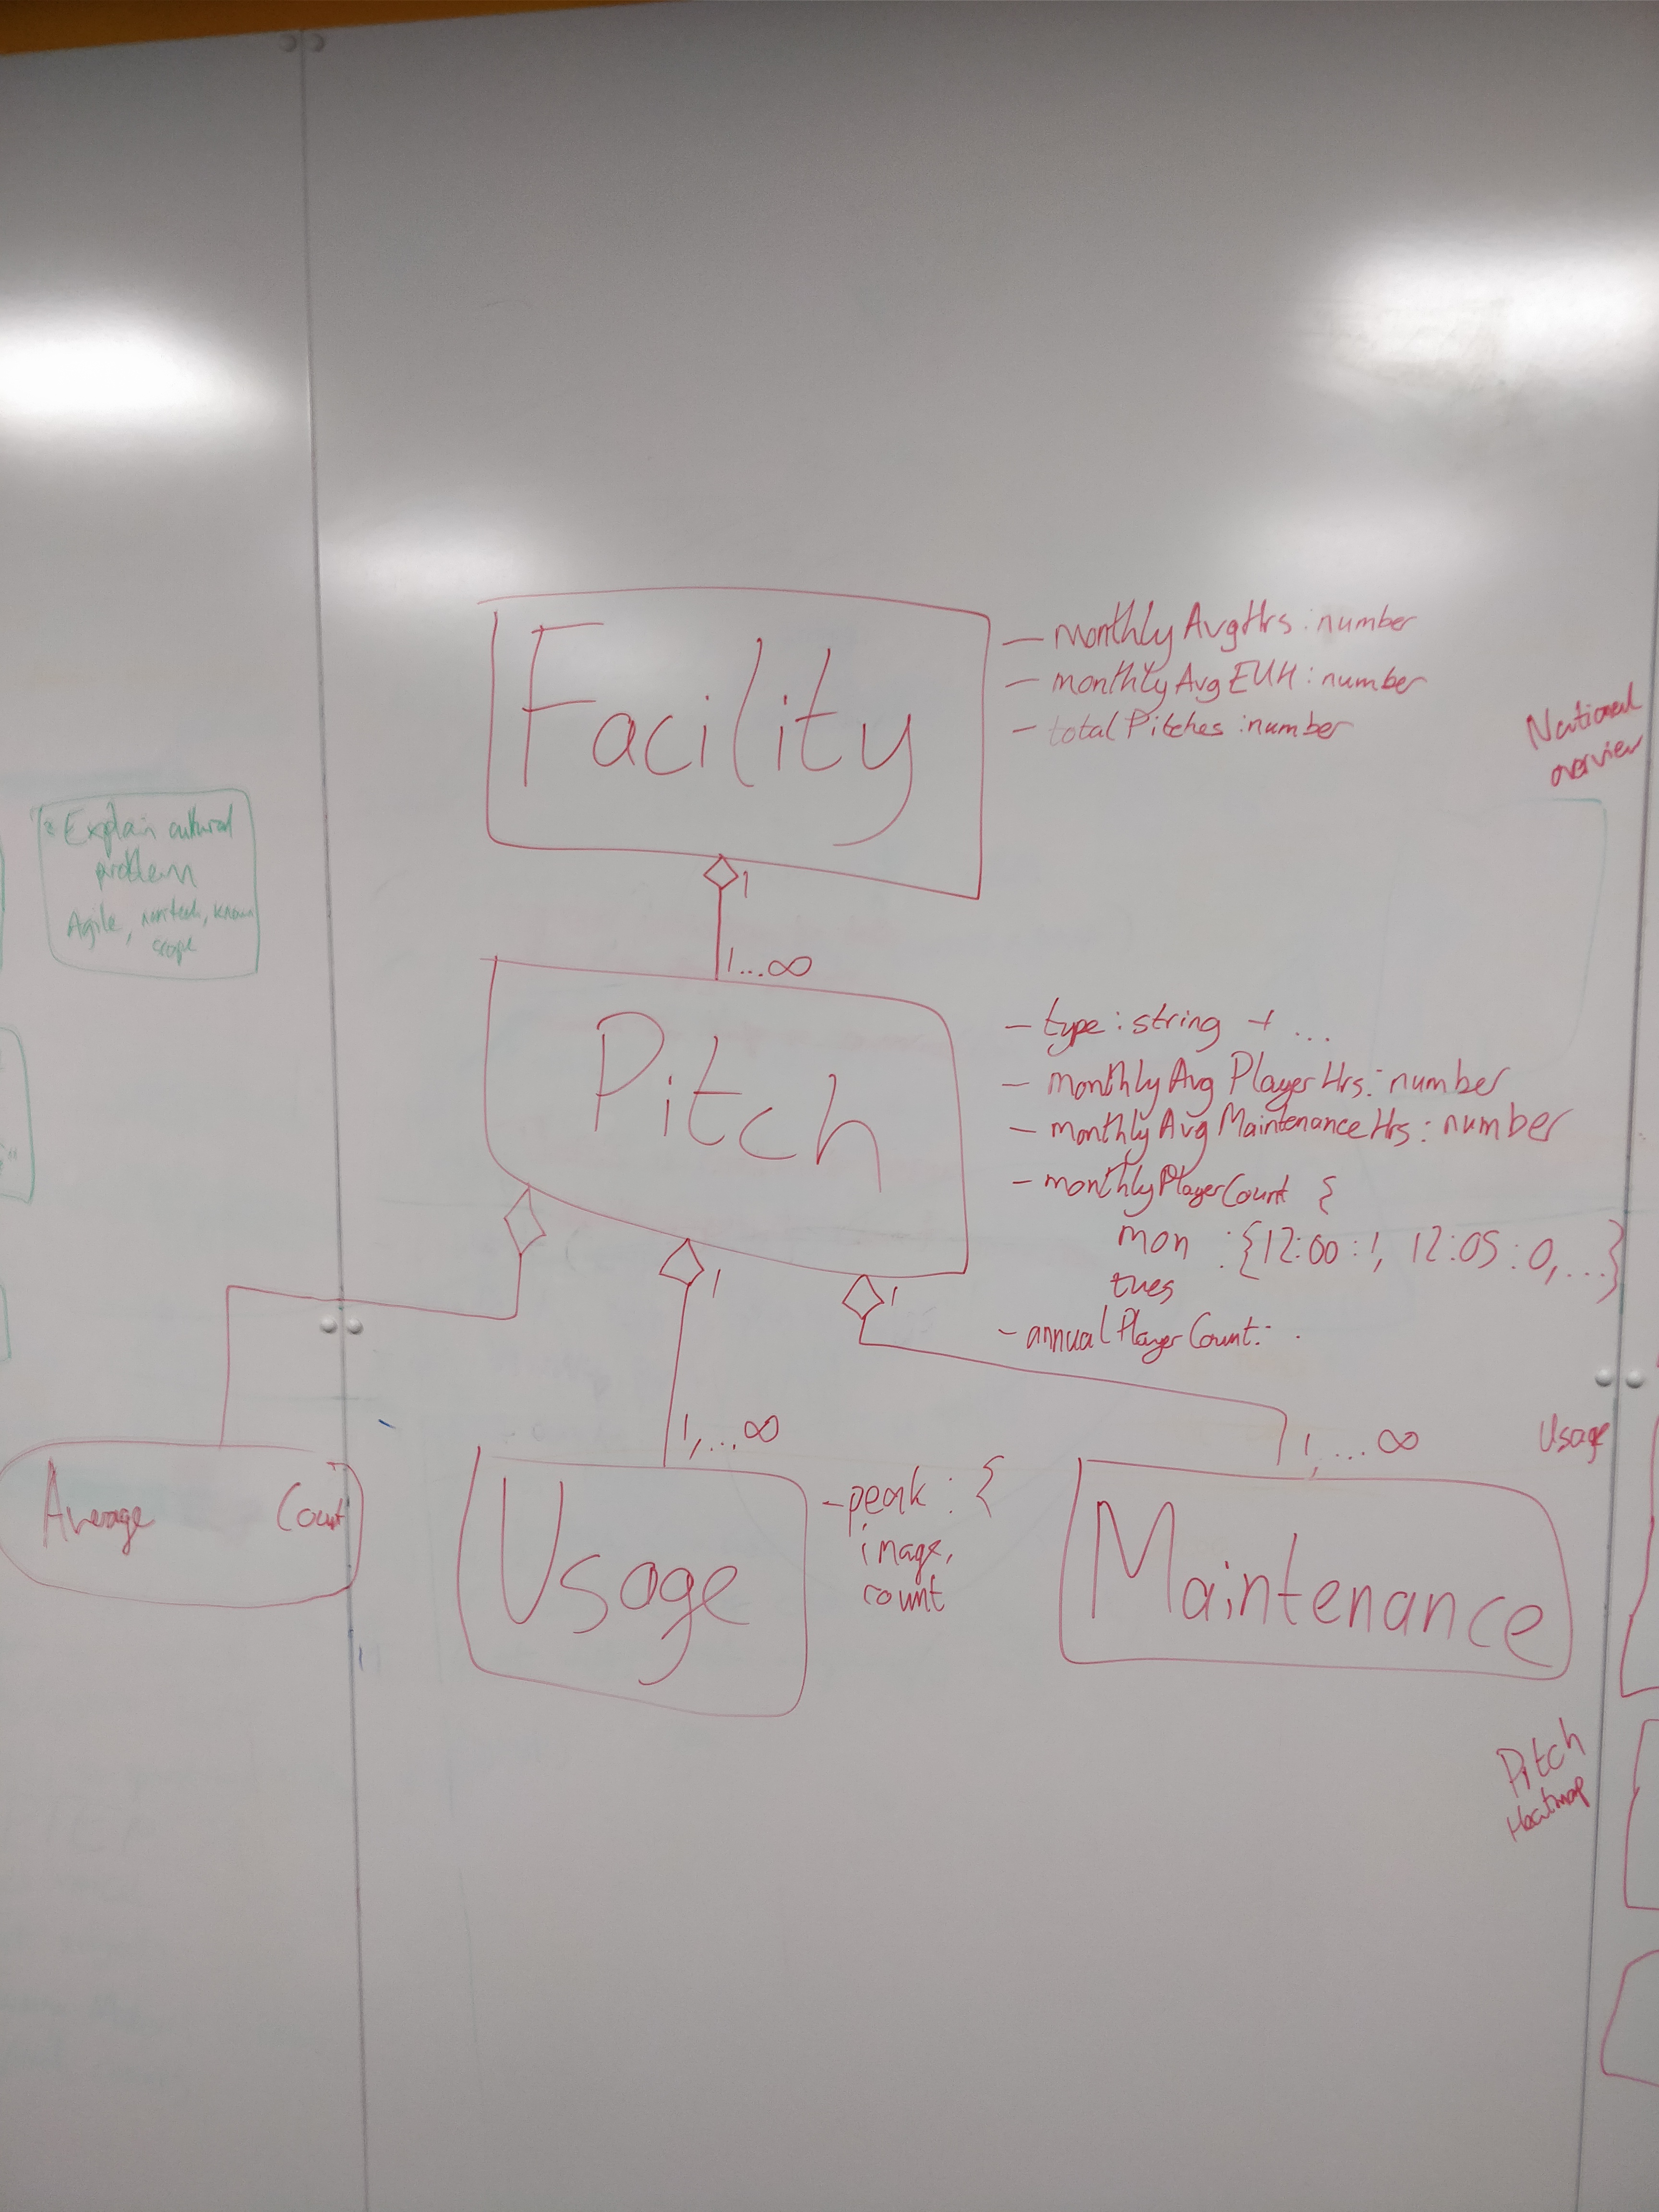 Facility
— monthlyAvgHrs : number
— monthlyAvgEUH : number
— totalPitches : number
National
overview
Explain cultural
problem
Agile, nontech, known
scope
1
1...∞
Pitch
— type : string + ...
— monthlyAvg PlayerHrs : number
— monthlyAvg MaintenanceHrs : number
— monthlyPlayerCount {
mon : {12:00 : 1, 12:05 : 0, ...}
tues
— annualPlayerCount :
1
1
1,...∞
1,...∞
Usage
Average Count
Usage
— peak : {
image,
count
Maintenance
Pitch
Heatmap